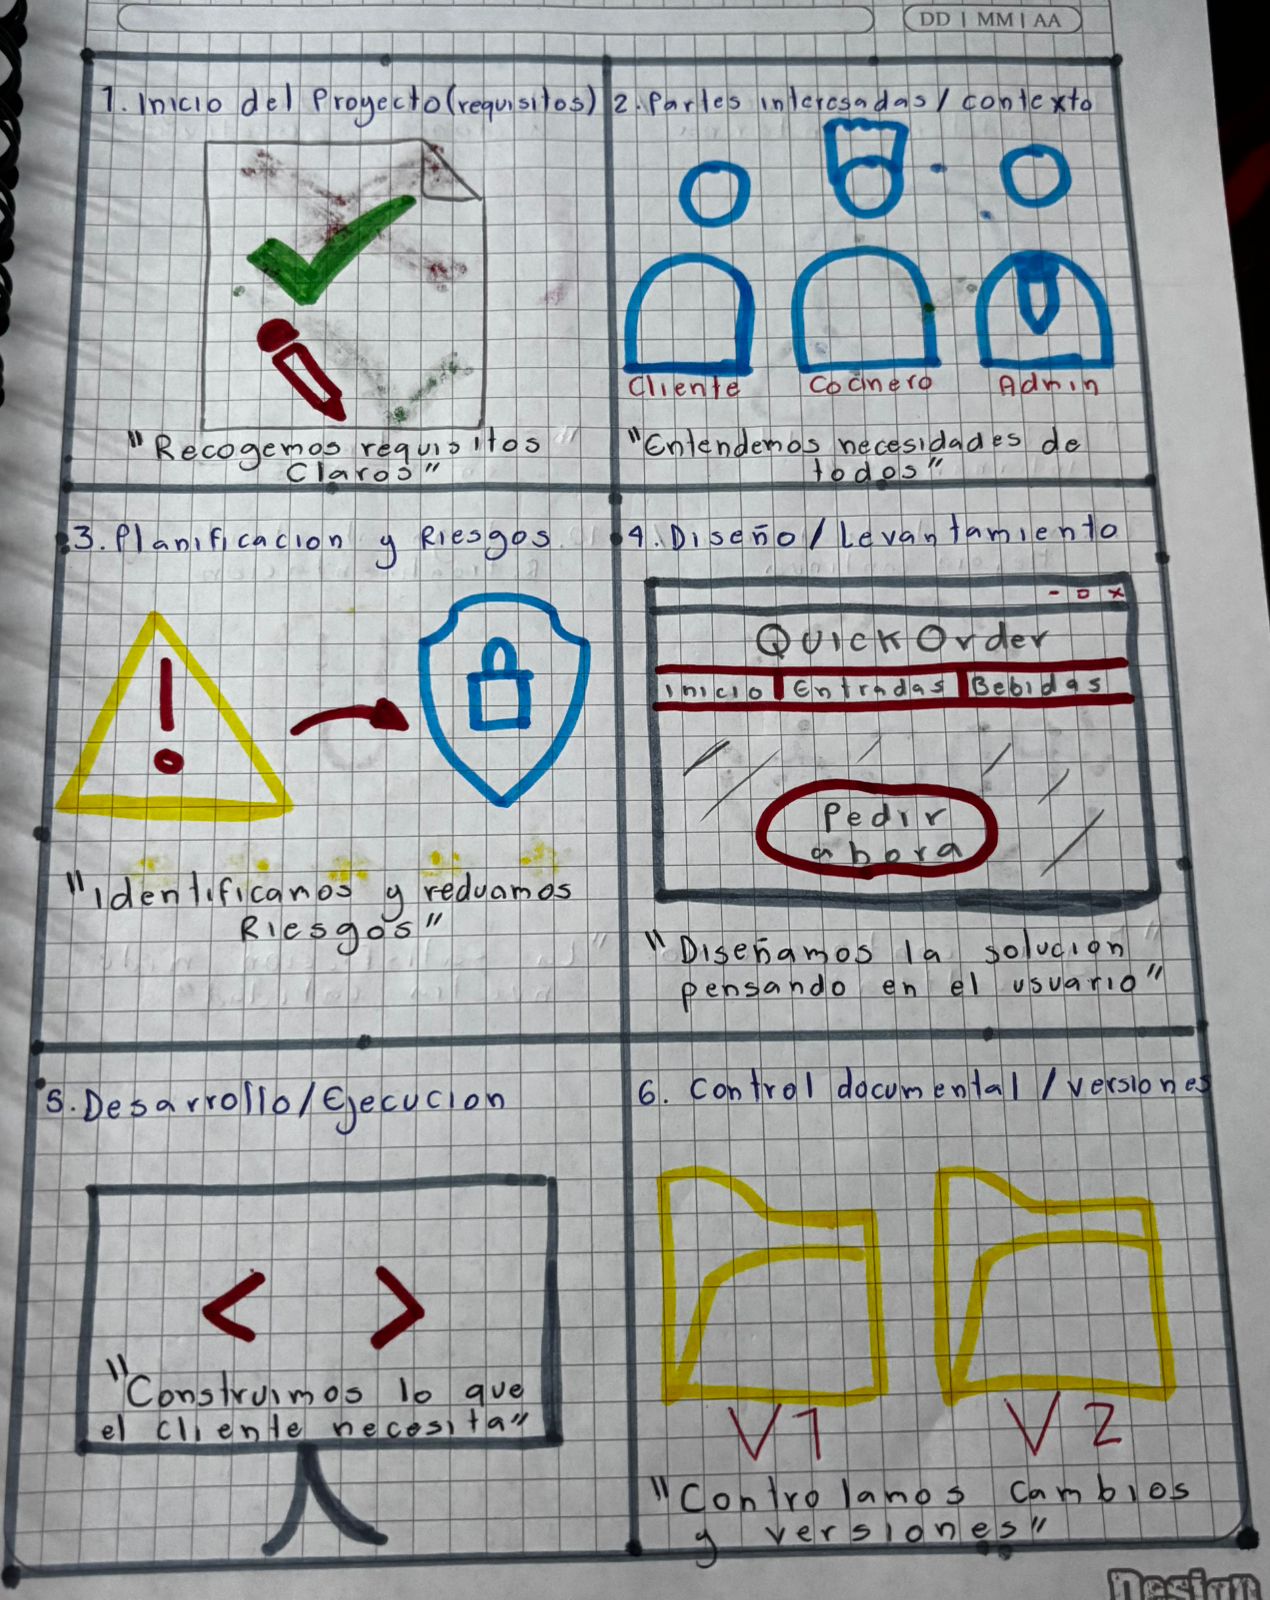 DD | MM | AA
1. Inicio del Proyecto (requisitos)
"Recogemos requisitos
Claros"
2. Partes interesadas / contexto
Cliente
Cocinero
Admin
"Entendemos necesidades de
todos"
3. Planificacion y Riesgos
"Identificamos y reducimos
Riesgos"
4. Diseño / Levantamiento
- □ x
QuickOrder
inicio Entradas Bebidas
Pedir
ahora
"Diseñamos la solucion
pensando en el usuario"
5. Desarrollo / Ejecucion
< >
"Construimos lo que
el cliente necesita"
6. Control documental / versiones
V1 V2
"Controlamos Cambios
y versiones"
Design